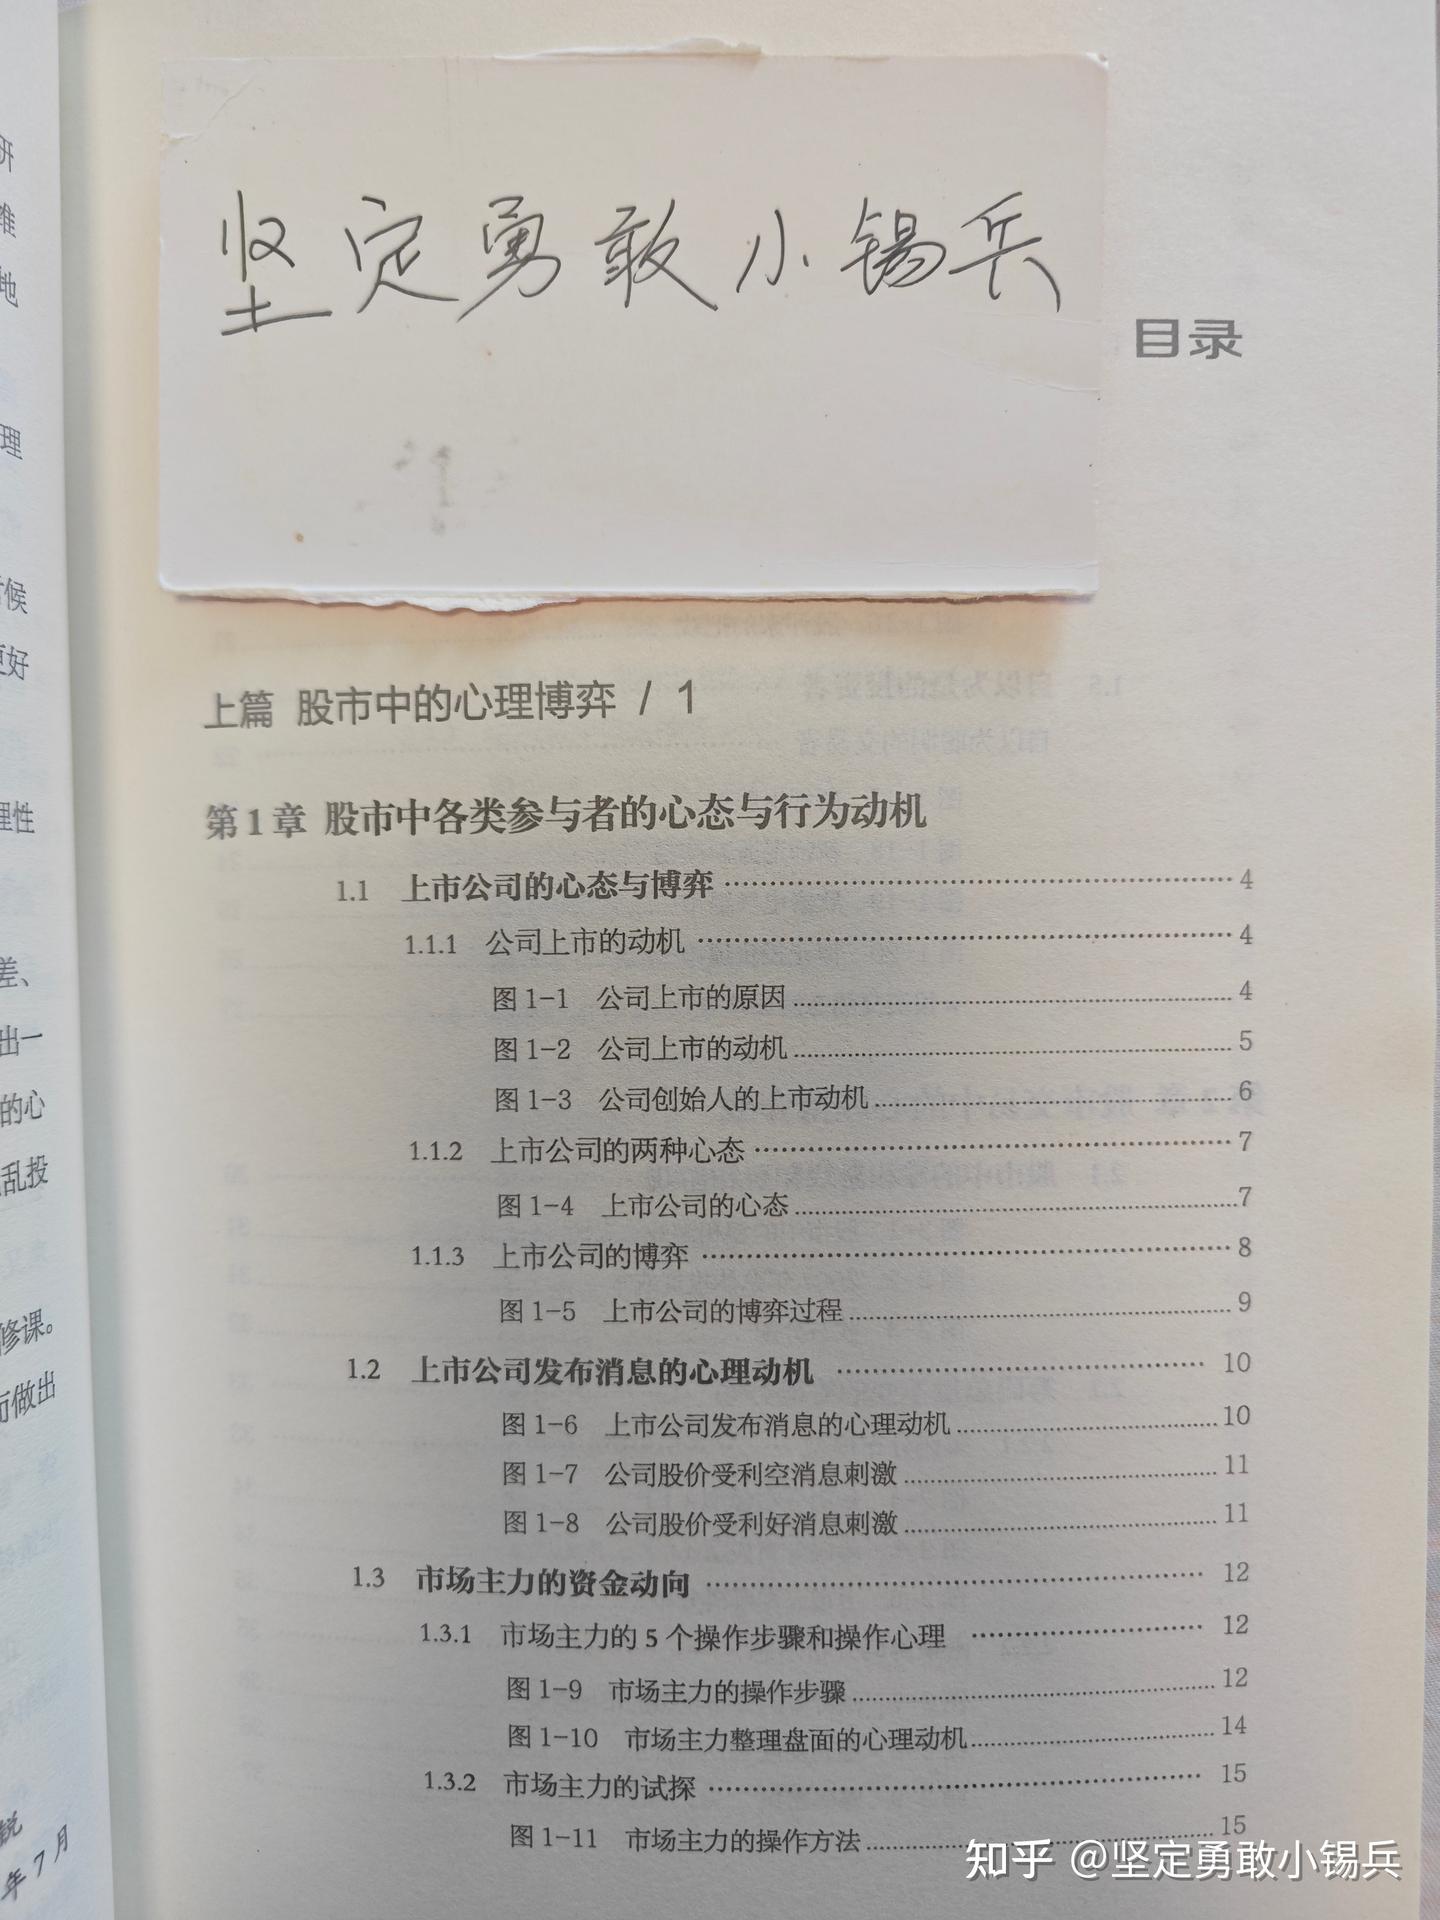 坚定勇敢小锡兵
目录
上篇 股市中的心理博弈 / 1
第1章 股市中各类参与者的心态与行为动机
1.1 上市公司的心态与博弈 4
1.1.1 公司上市的动机 4
图 1-1 公司上市的原因 4
图 1-2 公司上市的动机 5
图 1-3 公司创始人的上市动机 6
1.1.2 上市公司的两种心态 7
图 1-4 上市公司的心态 7
1.1.3 上市公司的博弈 8
图 1-5 上市公司的博弈过程 9
1.2 上市公司发布消息的心理动机 10
图 1-6 上市公司发布消息的心理动机 10
图 1-7 公司股价受利空消息刺激 11
图 1-8 公司股价受利好消息刺激 11
1.3 市场主力的资金动向 12
1.3.1 市场主力的 5 个操作步骤和操作心理 12
图 1-9 市场主力的操作步骤 12
图 1-10 市场主力整理盘面的心理动机 14
1.3.2 市场主力的试探 15
图 1-11 市场主力的操作方法 15
地
理
候
更好
理性
差、
出一
的心
乱投
修课。
做出
年7月
知乎 @坚定勇敢小锡兵